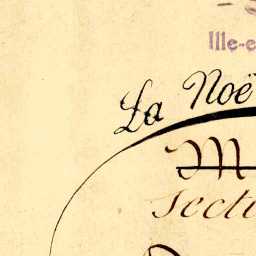 Ille-e
La Noë
M
Secti